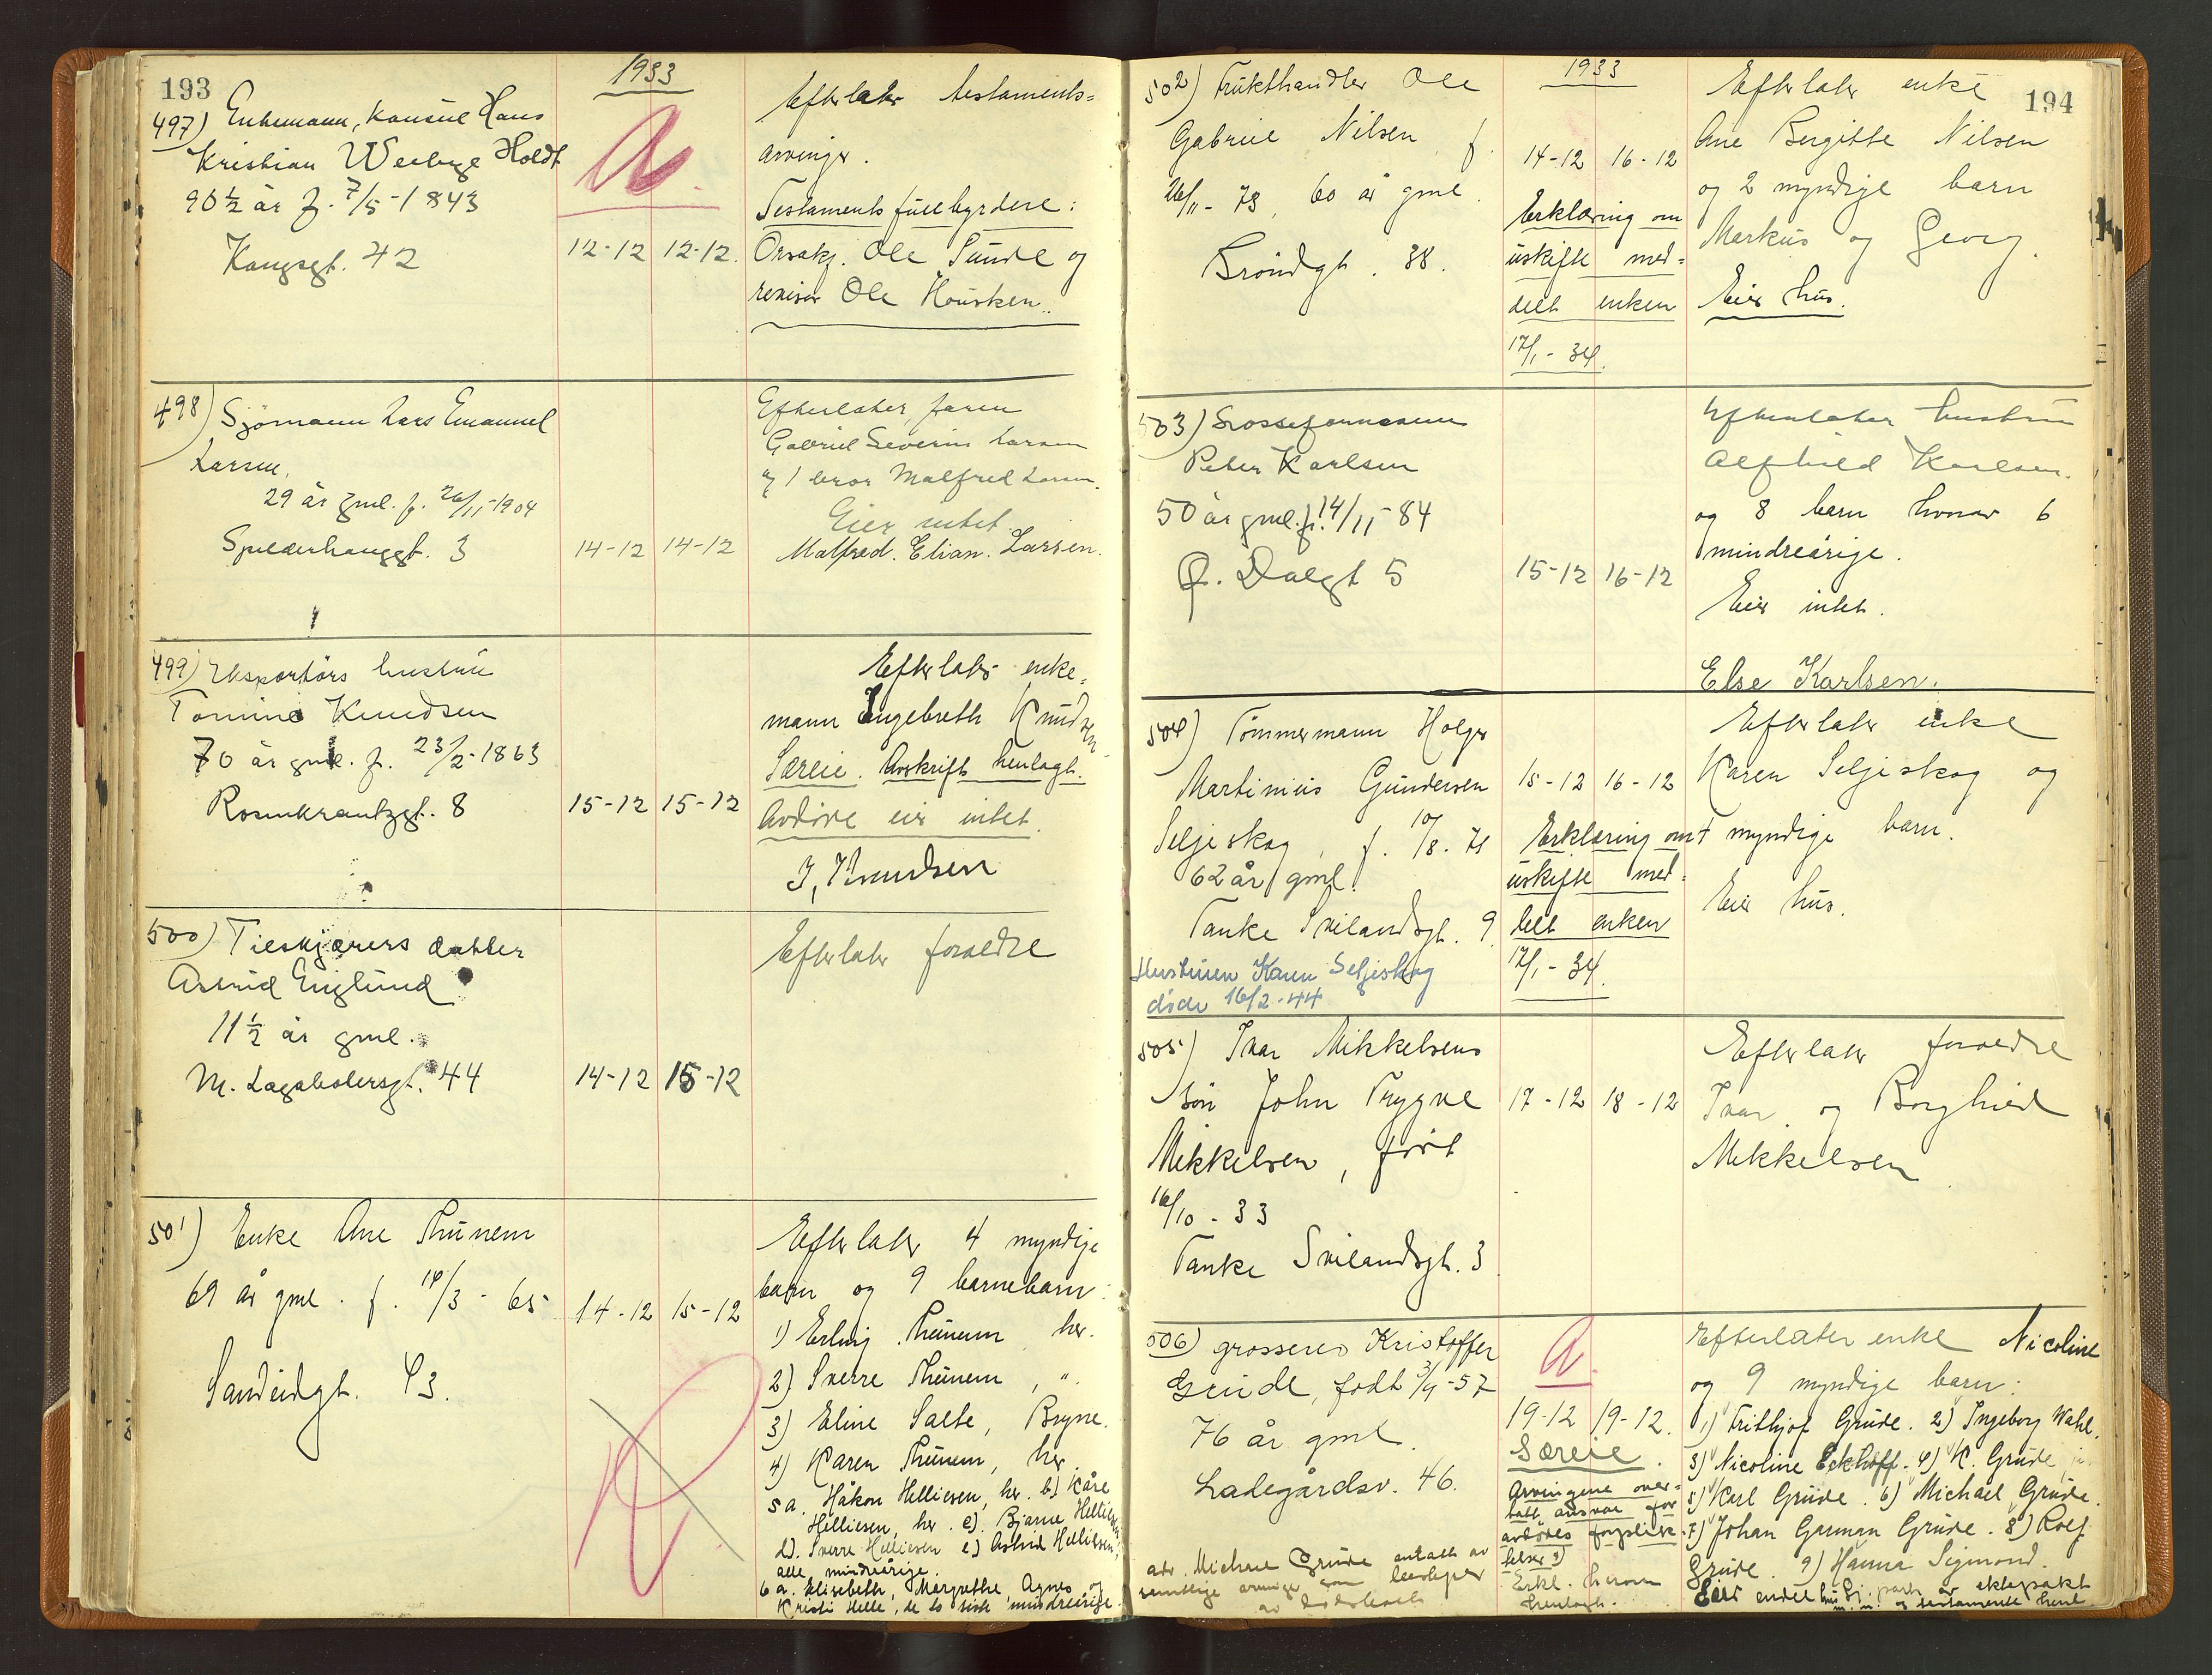 193
1933
497) Enkemann, konsul Hans
Kristian Welleye Holdt
90 1/2 år f. 7/5-1843
Kongsgt. 42
12-12 12-12.
Efterlater testaments-
arvinger.
Testamentsfullbyrdere:
Orsakf. Ole Sunde og
revisor Ole Housken.
498) Sjömann Lars Emanuel
Larsen,
29 år gml. f. 26/11-1904
Spilderhauggt. 3
14-12 14-12
Efterlater faren
Gabriel Severin Larsen
og 1 bror Malfred Larsen.
Eier intet.
Malfred. Elian. Larsen.
499) Eksportörs hustru
Tomine Knudsen
70 år gml. f. 23/2-1863
Rosenkrantzgt. 8
15-12 15-12
Efterlater enke-
mann Ingebreth Knudsen
Særeie. Avskrift henlagt.
Avdöde eier intet.
I. Knudsen
500) Tilskjærers datter
Astrid Englund
11 1/2 år gml.
M. Lagabötersgt. 44
14-12 15-12
Efterlater foreldre
501) Enke Ane Thunem
69 år gml. f. 14/3-65
Sandeidgt. 43.
14-12 15-12
Efterlater 4 myndige
barn og 9 barnebarn:
1) Erling Thunem her.
2) Sverre Thunem, "
3) Eline Salte, Bryne.
4) Karen Thunem, her.
5 a. Håkon Helliesen, her. b) Kåre
Helliesen, her. c). Bjarne Helliesen,
d). Sverre Helliesen e) Astrid Helliesen,
alle mindreårige.
6 a. Elisabeth, Margrethe, Agnes og
Kristi Helle, de to siste mindreårige.
194
1933
502) Frukthandler Ole
Gabriel Nilsen f.
26/11-73, 60 år gml.
Bröndgt. 38.
14-12 16-12
Erklæring om
uskifte med-
delt enken
17/1-34.
Efterlater enke
Ane Bergitte Nilsen
og 2 myndige barn
Markus og Georg.
Eier hus.
503) Grosseformann
Peter Karlsen
50 år gml. f. 14/11-84
Q. Dalgt 5
15-12 16-12
Efterlater hustru
Alfhild Karlsen.
og 8 barn hvorav 6
mindreårige.
Eier intet.
Else Karlsen.
504) Tömmermann Holger
Martinius Gundersen
Seljeskog, f. 10/8-71
62 år gml.
Tanke Svilandsgt. 9.
Hustruen Karen Seljeskog
døde 16/2-44
15-12 16-12
Erklæring om
uskifte med-
delt enken
17/1-34.
Efterlater enke
Karen Seljeskog og
4 myndige barn.
Eier hus.
505) Ivar Mikkelsens
sön John Trygve
Mikkelsen, född
16/10-33
Tanke Svilandsgt. 3
17-12 18-12
Efterlater foreldre
Ivar og Borghild
Mikkelsen
506) grosserer Kristoffer
Grude, født 3/4-57
76 år gml.
Ladegårdsv. 46.
adv. Michael Grude antatt av
samtlige arvinger som
19-12 19-12.
Særeie.
Arvingene over-
tatt ansvar for
avdödes forplik-
telser
Erkl. herom
henlagt.
Efterlater enke Nicoline
og 9 myndige barn:
1) Frithjof Grude. 2) Ingeborg Wahl.
3) Nicoline Eckhoff. 4) K. Grude
5) Karl Grude. 6) Michael Grude.
7) Johan Garman Grude. 8) Rolf
Grude. 9) Hanna Sigmond.
ektepakt
og testamente henl.